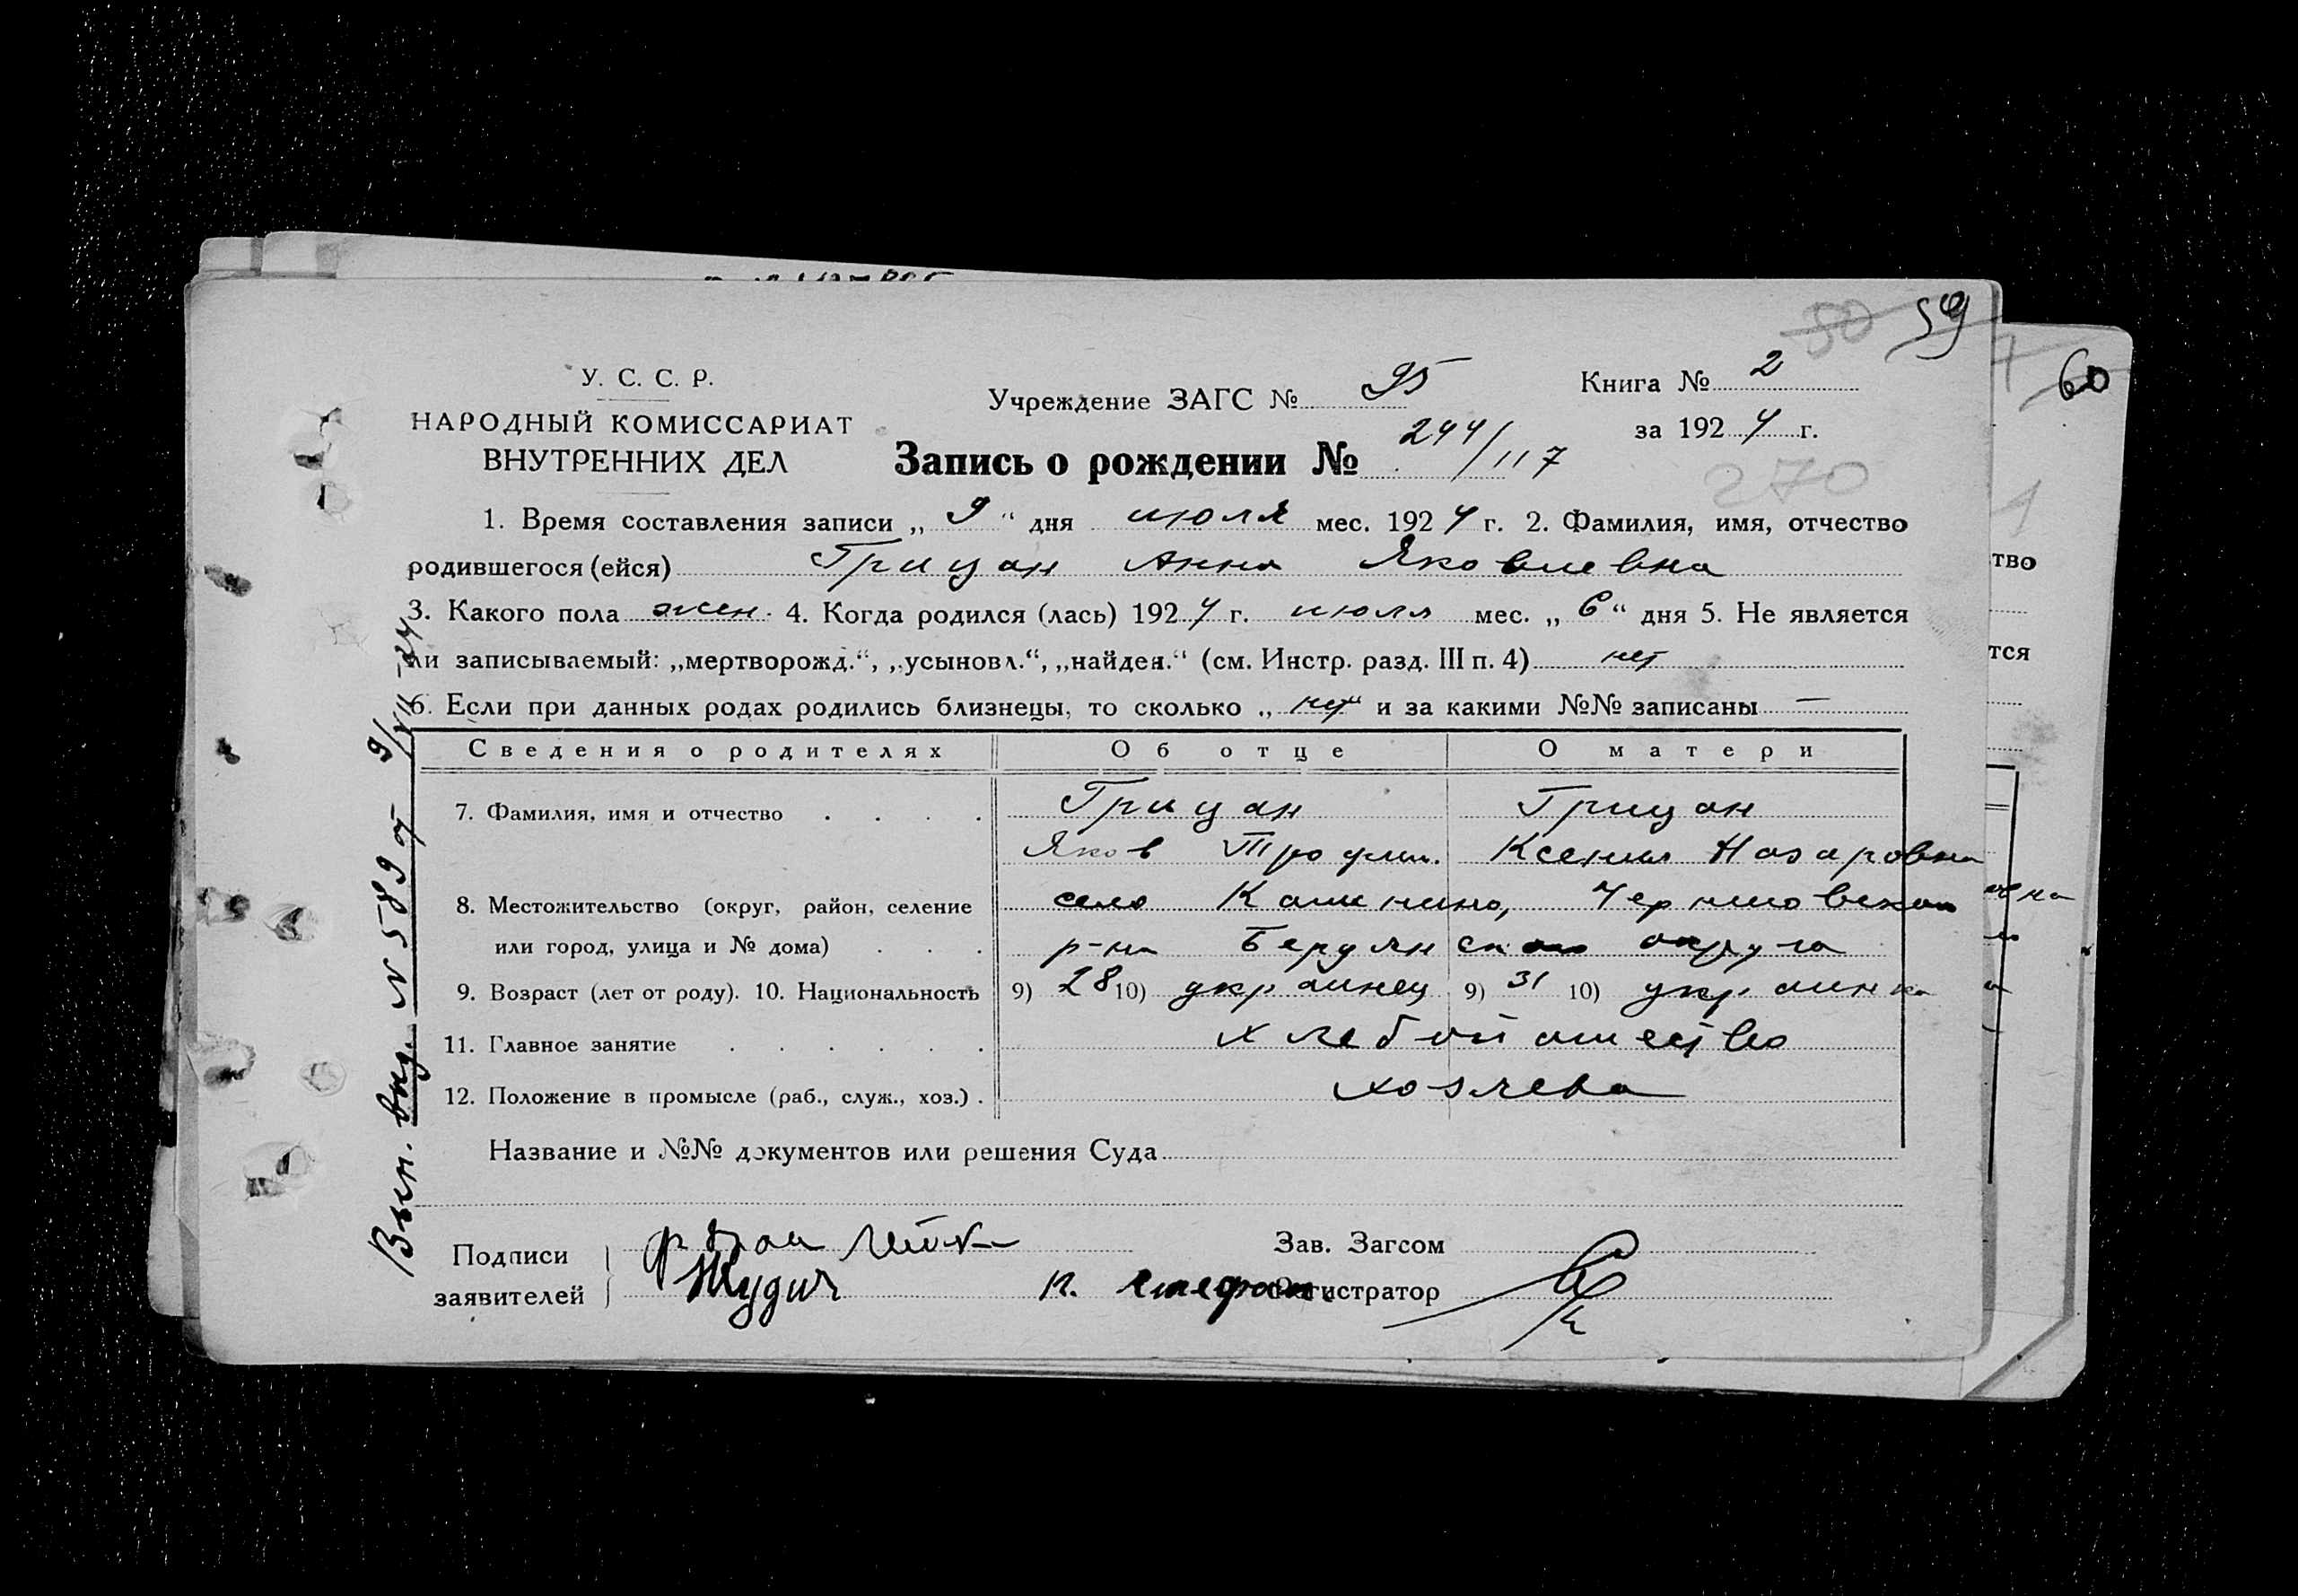 50 59
60
У. С. С. Р.
НАРОДНЫЙ КОМИССАРИАТ
ВНУТРЕННИХ ДЕЛ
Учреждение ЗАГС № 95
Книга № 2
за 1924 г.
Запись о рождении № 244/117
270
1
1. Время составления записи „ 9 “ дня июля мес. 1924 г. 2. Фамилия, имя, отчество
родившегося (ейся) Грицан Анна Яковлевна
тво
3. Какого пола жен. 4. Когда родился (лась) 1924 г. июля мес. „ 6 “ дня 5. Не является
ли записываемый: „мертворожд.“, „усыновл.“, „найден.“ (см. Инстр. разд. III п. 4) нет
тся
6. Если при данных родах родились близнецы, то сколько „ нет “ и за какими №№ записаны —
Сведения о родителях Об отце О матери
7. Фамилия, имя и отчество . . . . Грицан Грицан
Яков Трофим. Ксения Назаровна
8. Местожительство (округ, район, селение село
или город, улица и № дома) . . . р-на Бердянского округа
9. Возраст (лет от роду). 10. Национальность 9) 28 10) украинец 9) 31 10) украинка
11. Главное занятие . . . . . . хлебопашество
12. Положение в промысле (раб., служ., хоз.) . хозяева
Название и №№ документов или решения Суда
Подписи
заявителей
Зав. Загсом
Регистратор
Вып. выд. № 589 от 9/VII-24